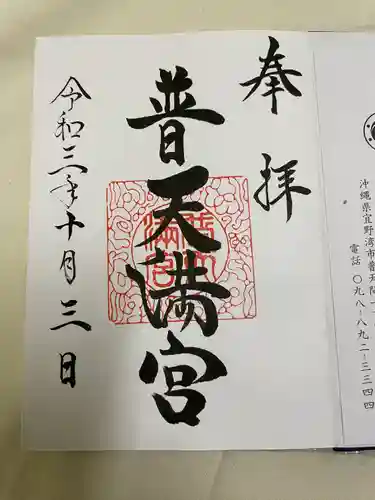 奉拝
普天満宮
令和三年十月三日
沖縄県宜野湾市普天間一
電話 〇九八-八九二-三三四四